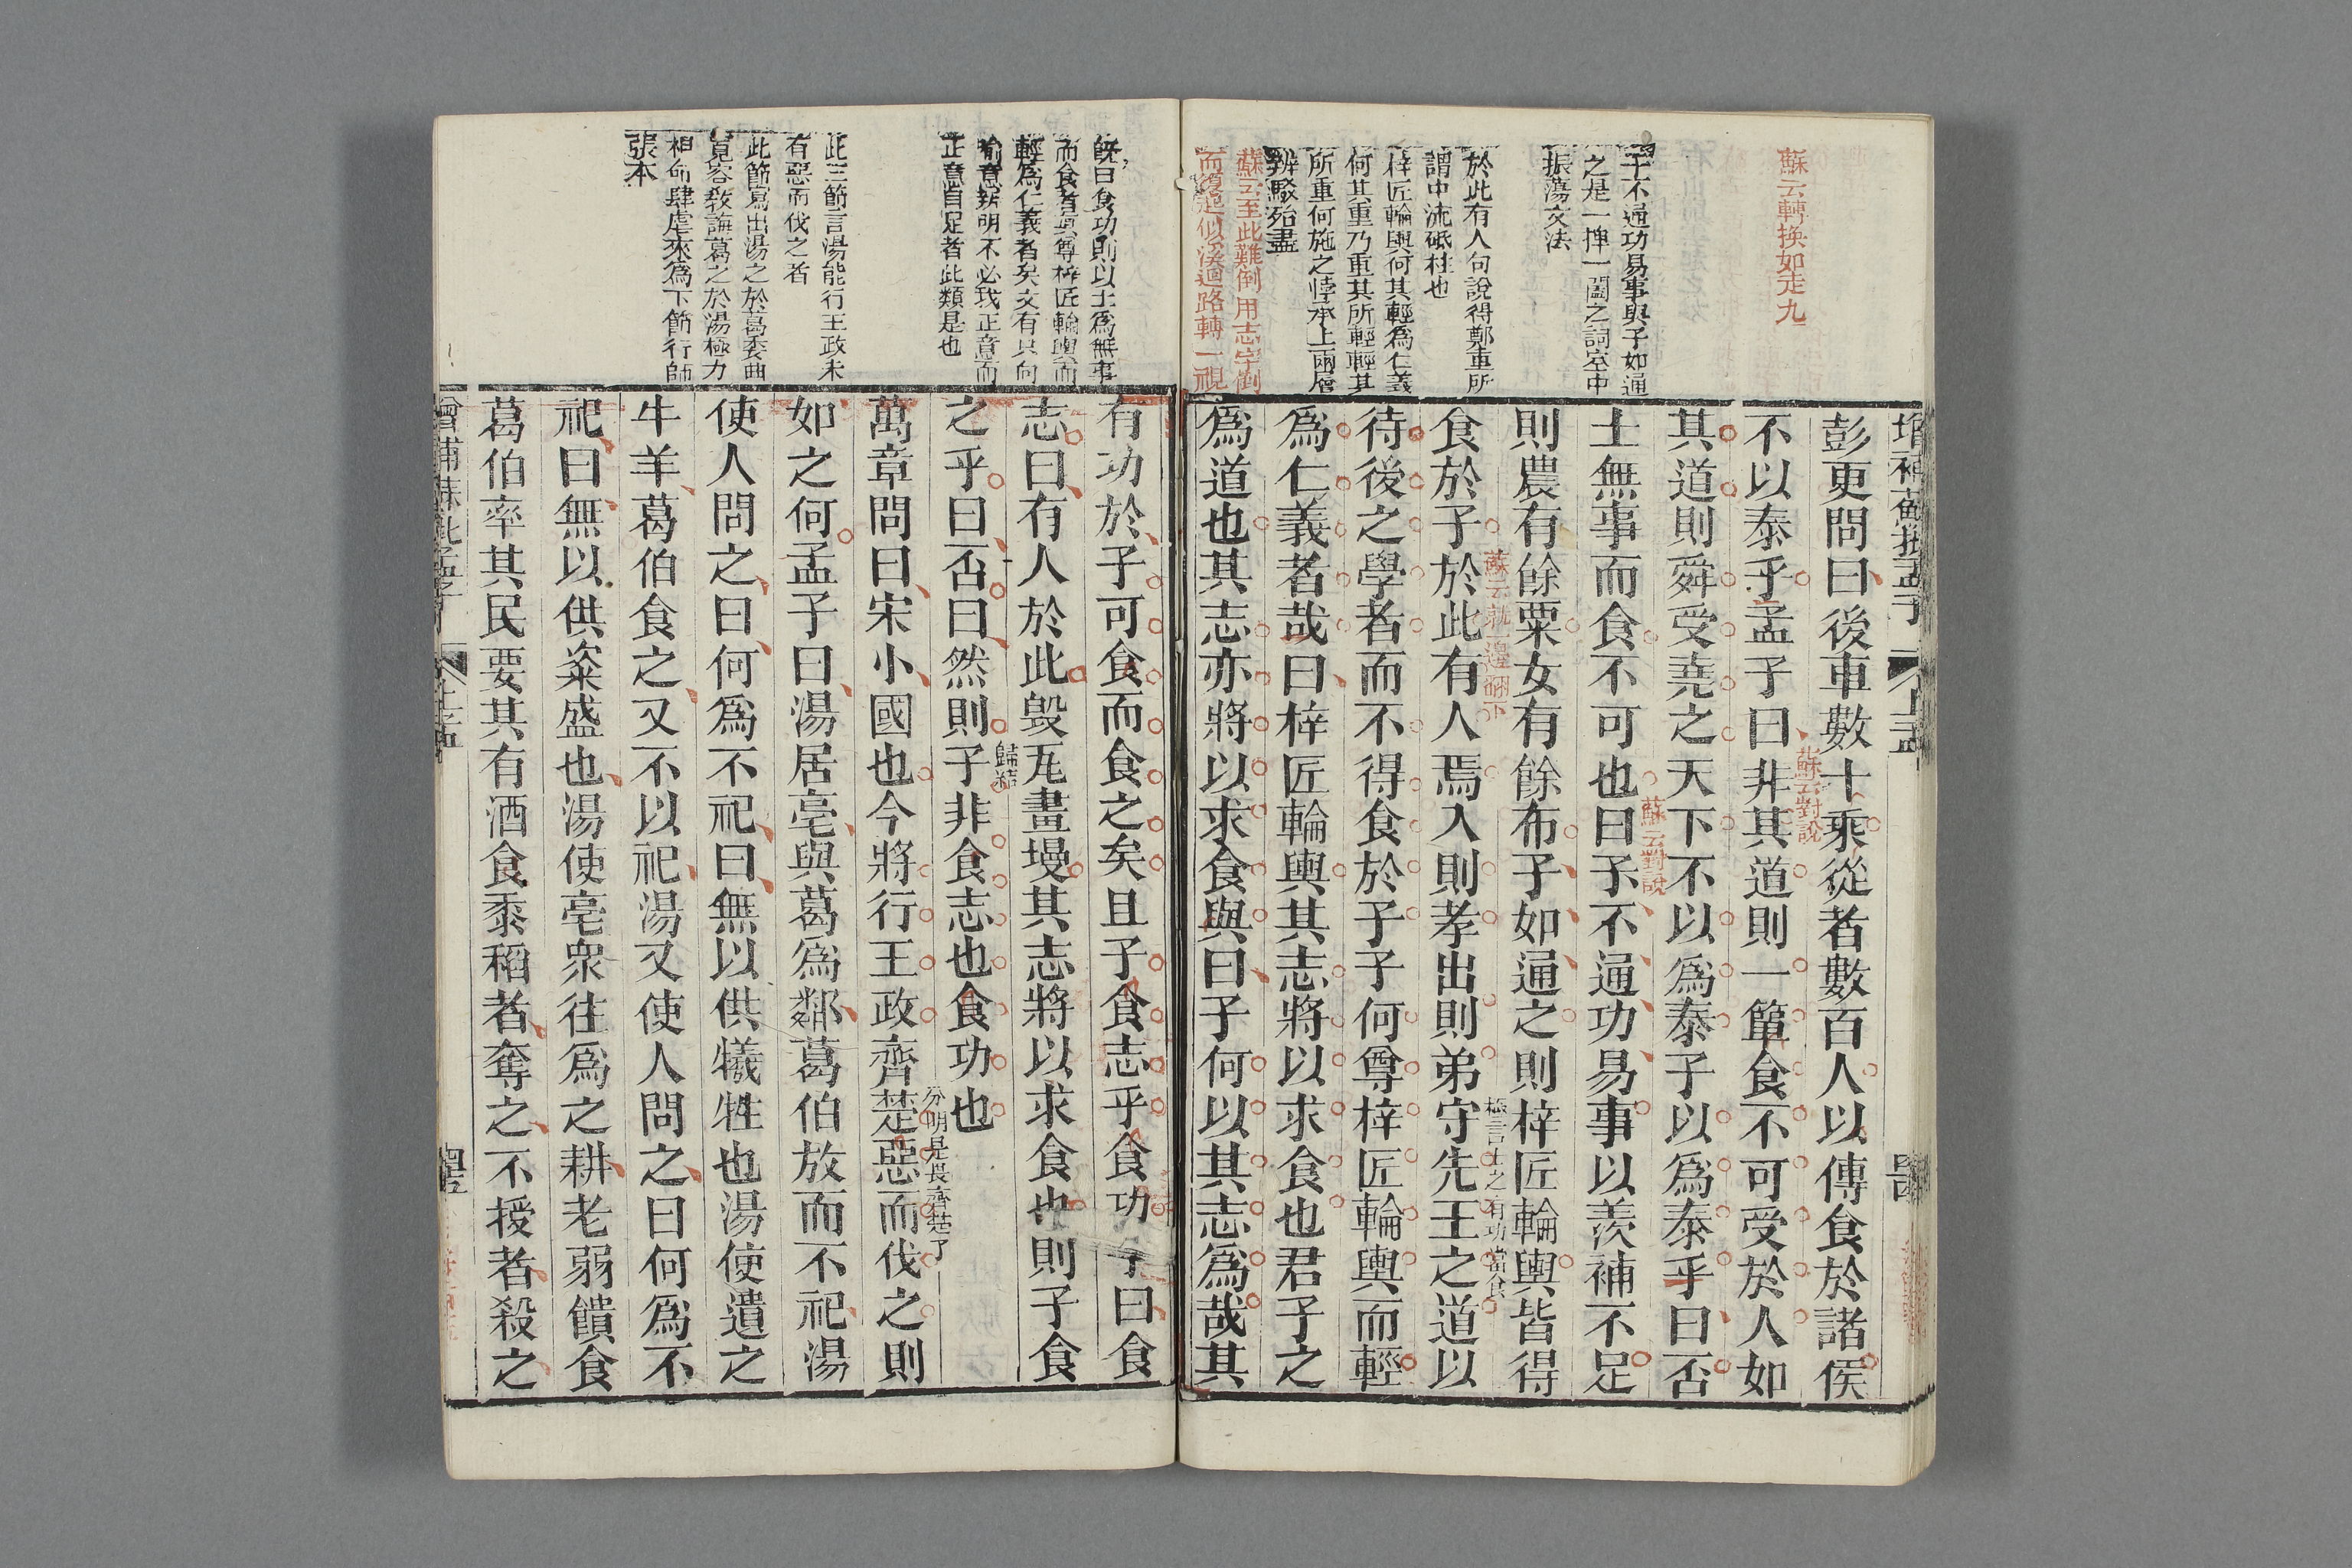 增補蘇批孟子
上孟
蘇云轉換如走九
子不通功易事與子如通
之是一捭一闔之詞空中
振蕩文法
於此有人句說得鄭重所
謂中流砥柱也
梓匠輪輿何其輕爲仁義
何其重乃重其所輕輕其
所重何施之悖承上兩層
辨駁殆盡
蘇云至此難倒用志字倒
而復起似溪迴路轉一視
彭更問曰後車數十乘從者數百人以傳食於諸侯
不以泰乎孟子曰非其道則一簞食不可受於人如
蘇云對說
其道則舜受堯之天下不以爲泰子以爲泰乎曰否
士無事而食不可也曰子不通功易事以羨補不足
蘇云對說
則農有餘粟女有餘布子如通之則梓匠輪輿皆得
食於子於此有人焉入則孝出則弟守先王之道以
蘇云就一邊翻下
極言士之有功當食
待後之學者而不得食於子子何尊梓匠輪輿而輕
爲仁義者哉曰梓匠輪輿其志將以求食也君子之
爲道也其志亦將以求食與曰子何以其志爲哉其
既曰食功則以士爲無事
而食者眞尊梓匠輪輿而
輕爲仁義者矣文有只向
喻意辨明不必找正意而
正意自足者此類是也
此三節言湯能行王政未
有惡而伐之者
此節寫出湯之於葛委曲
寬容敎誨葛之於湯極力
相命肆虐來爲下節行師
張本
有功於子可食而食之矣且子食志乎食功乎曰食
志曰有人於此毀瓦畫墁其志將以求食也則子食
之乎曰否曰然則子非食志也食功也
歸結
萬章問曰宋小國也今將行王政齊楚惡而伐之則
分明是畏齊楚了
如之何孟子曰湯居亳與葛爲鄰葛伯放而不祀湯
使人問之曰何爲不祀曰無以供犧牲也湯使遺之
牛羊葛伯食之又不以祀湯又使人問之曰何爲不
祀曰無以供粢盛也湯使亳衆往爲之耕老弱饋食
葛伯率其民要其有酒食黍稻者奪之不授者殺之
增補蘇批孟子
上孟